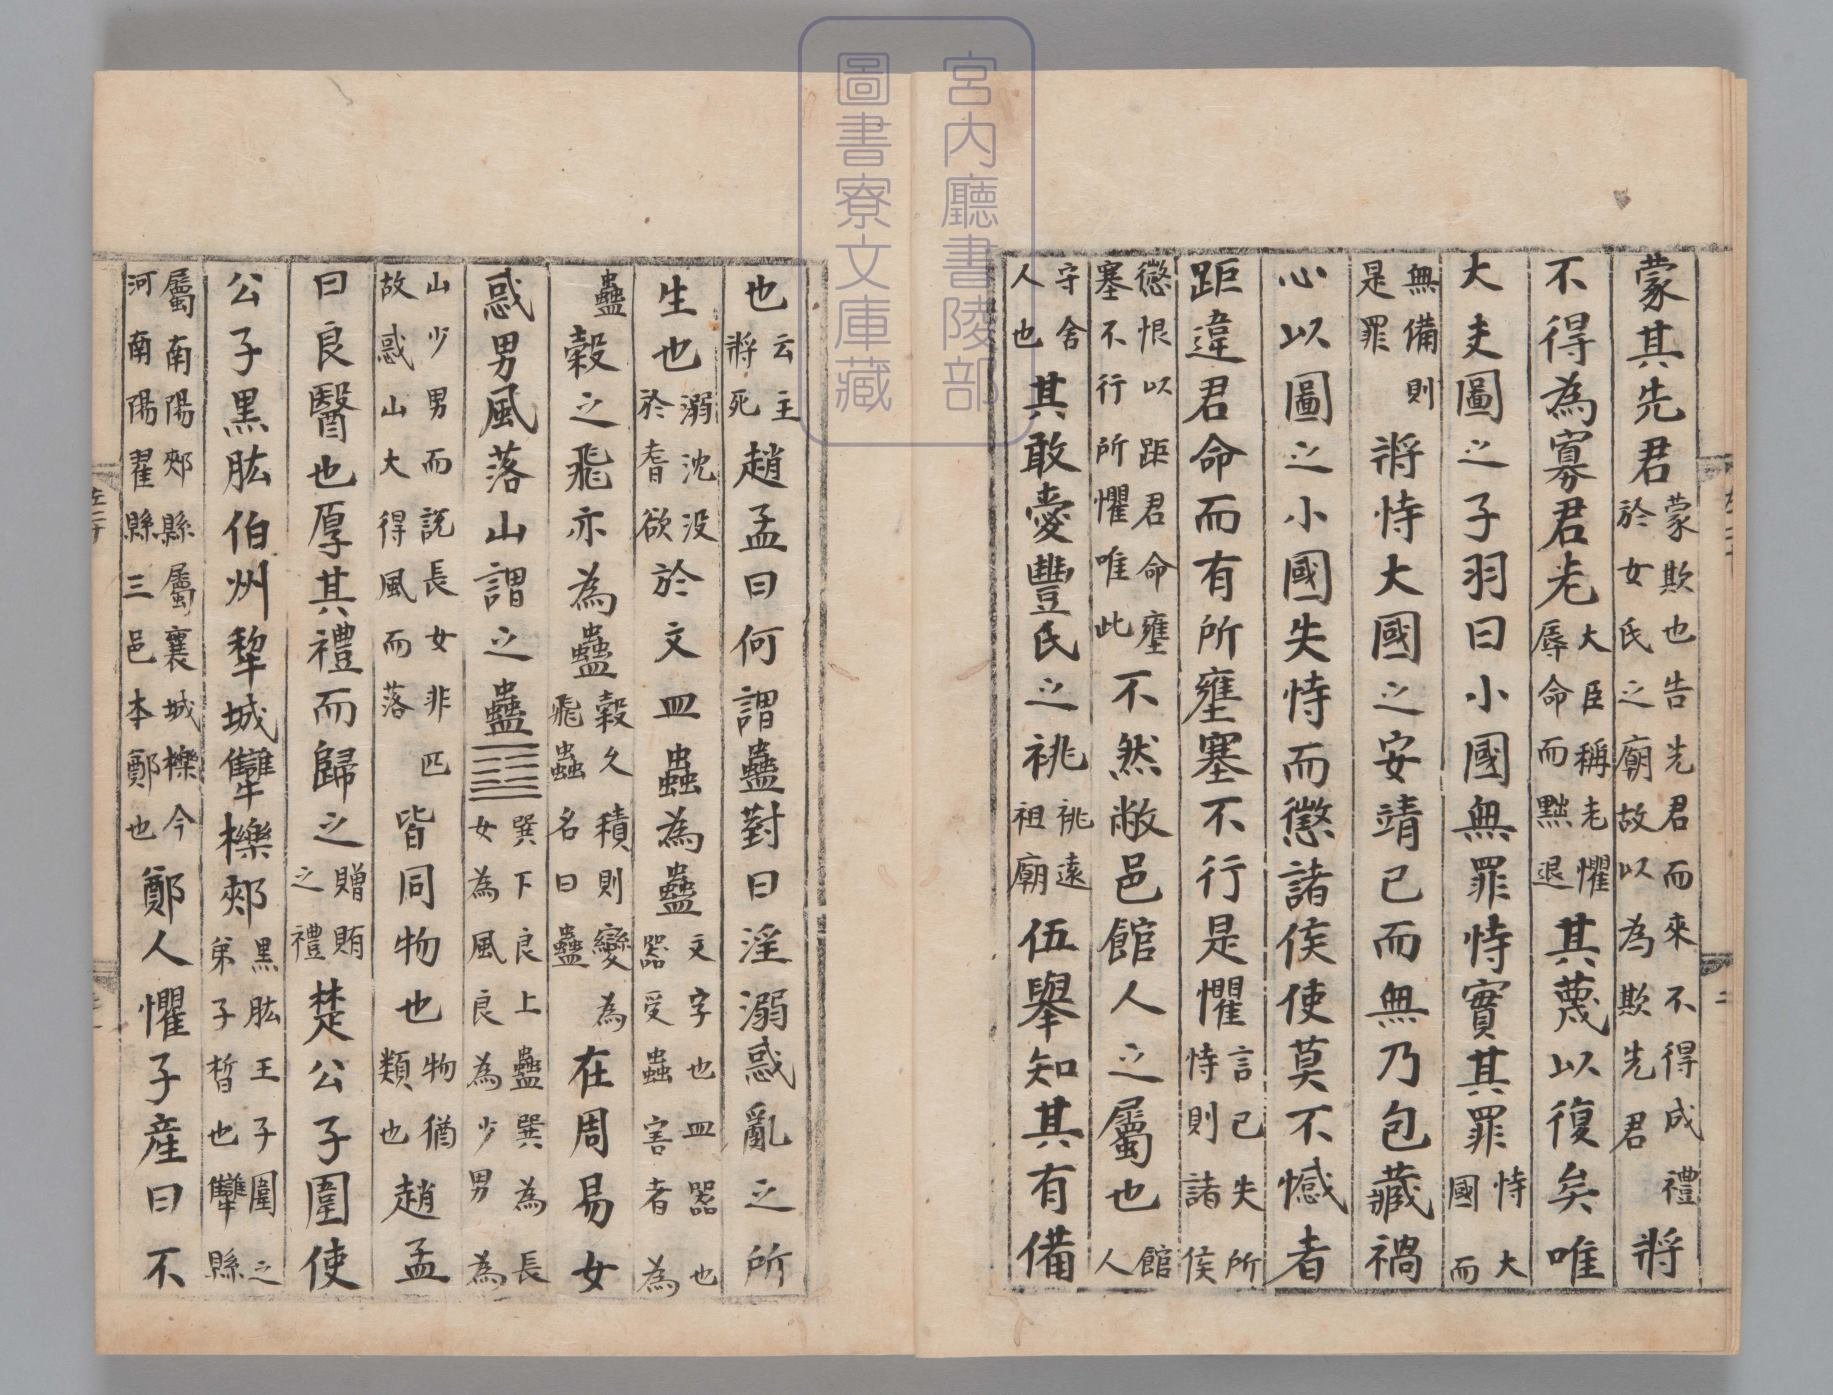 蒙其先君蒙欺也告先君而來不得成禮於女氏之廟故以為欺先君將
不得為寡君老大臣稱老懼辱命而黜退其蔑以復矣唯
大夫圖之子羽曰小國無罪恃實其罪恃大國而
無備則是罪將恃大國之安靖已而無乃包藏禍
心以圖之小國失恃而懲諸侯使莫不憾者
距違君命而有所壅塞不行是懼言已失所恃則諸侯
懲恨以距君命壅塞不行所懼唯此不然敝邑館人之屬也館人
守舍人也其敢愛豐氏之祧祧遠祖廟伍舉知其有備
也云主將死趙孟曰何謂蠱對曰淫溺惑亂之所
生也溺沈沒於耆欲於文皿蟲為蠱文字也皿器也器受蟲害者為
蠱穀之飛亦為蠱穀久積則變為飛蟲名曰蠱在周易女
惑男風落山謂之蠱䷑巽下艮上蠱巽為長女為風艮為少男為
山少男而說長女非匹故惑山大得風而落皆同物也物猶類也趙孟
曰良醫也厚其禮而歸之贈賄之禮楚公子圍使
公子黑肱伯州犂城犫櫟郟黑肱王子圍之弟子皙也犫縣
屬南陽郟縣屬襄城櫟今河南陽翟縣三邑本鄭也鄭人懼子產曰不
宮内廳書陵部
圖書寮文庫藏